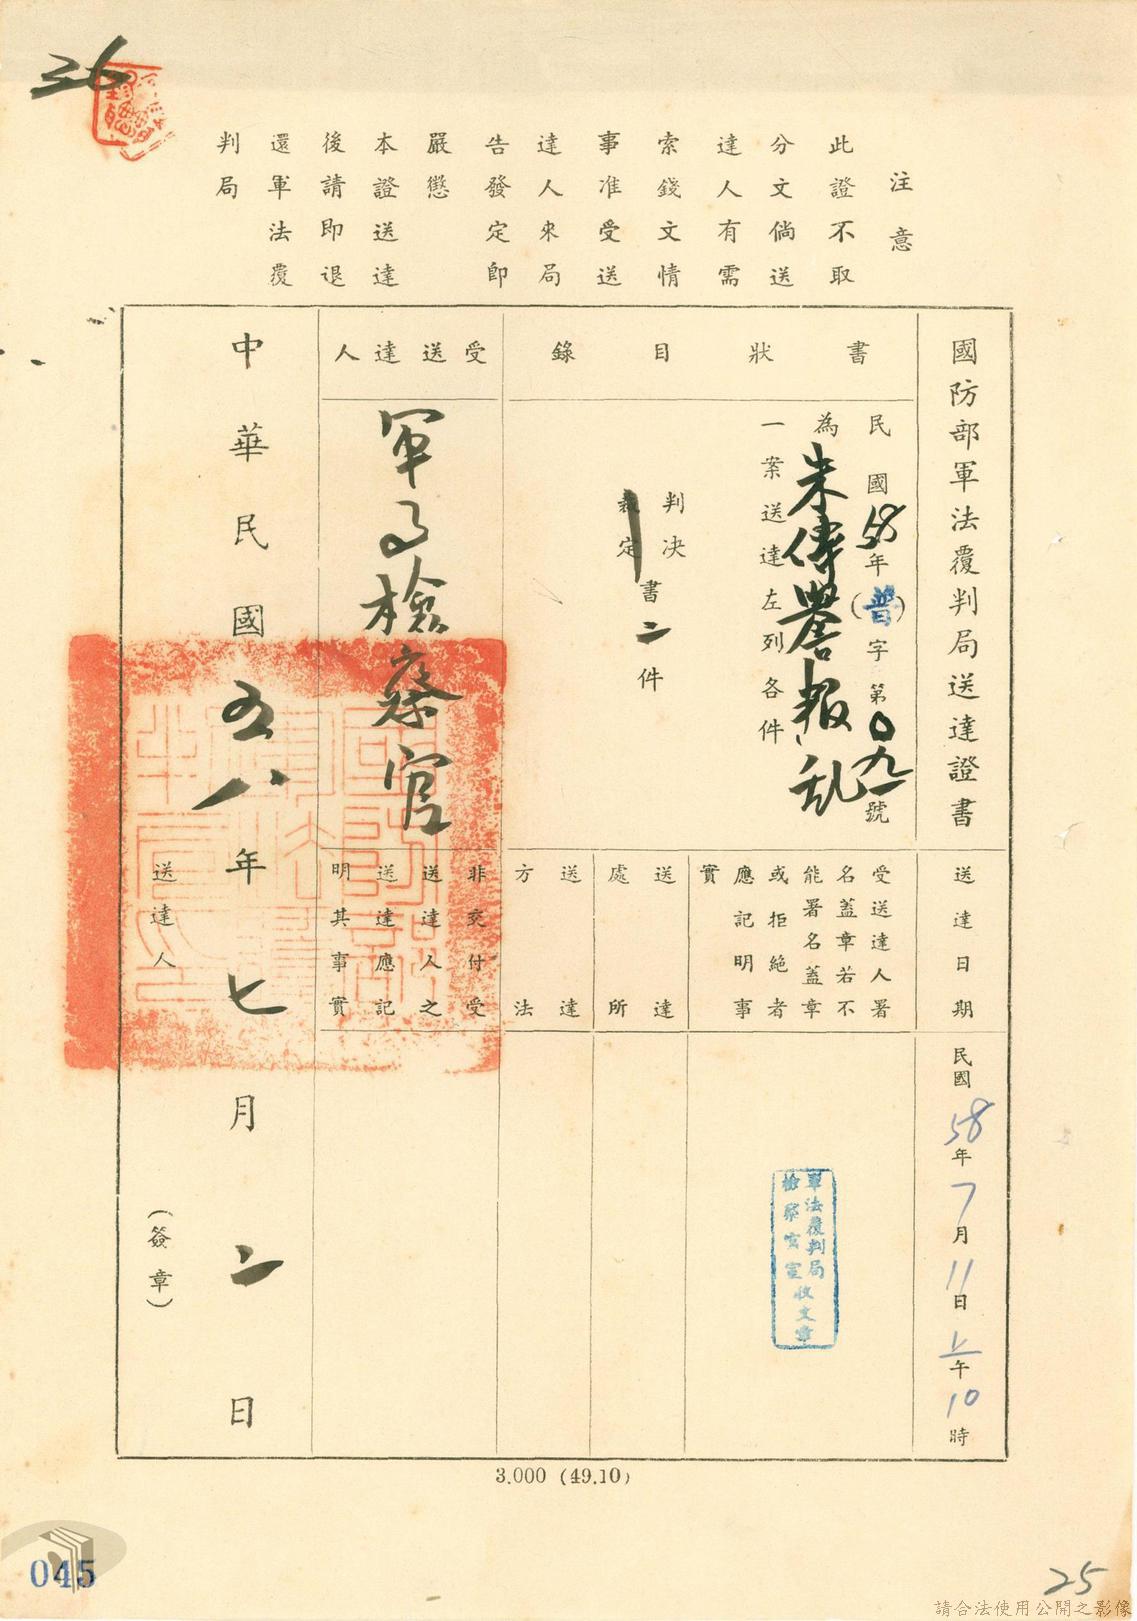 36
注意
此證不取
分文倘送
達人有需
索錢文情
事准受送
達人來局
告發定卽
嚴懲
本證送達
後請即退
還軍法覆
判局
國防部軍法覆判局送達證書
書狀目錄
民國58年(普)字第0九一號
為朱傳譽叛乱
一案送達左列各件
判決
裁定
書二件
受送達人
軍事檢察官
送達日期
民國58年7月11日上午10時
受送達人署
名蓋章若不
能署名蓋章
或拒絕者
應記明事
實
軍法覆判局
檢察官室收文章
送達
處所
送達
方法
非交付受
送達人之
送達應記
明其事實
中華民國五八年七月二日
送達人
(簽章)
3.000 (49.10)
045
25
請合法使用公開之影像